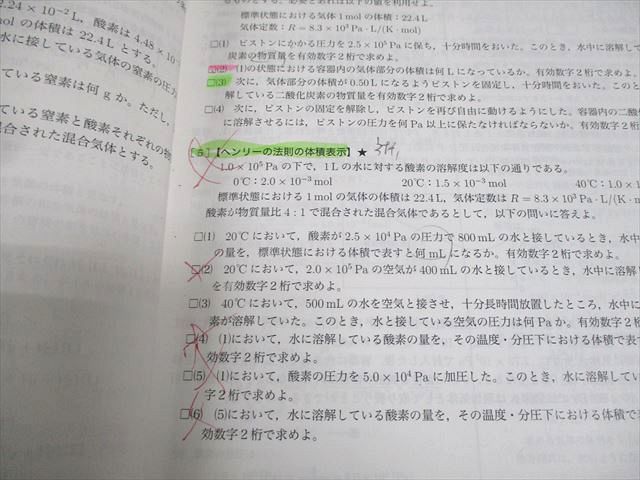 2.24 × 10⁻² L，酸素は 4.48 × 10
mol の体積は 22.4 L とする。
水に接している気体の窒素の圧力
ている窒素は何 g か。ただし，
ている窒素と酸素それぞれの物
混合された混合気体とする。
標準状態における気体 1 mol の体積：22.4 L
気体定数：R = 8.3 × 10³ Pa・L/(K・mol)
□(1) ピストンにかかる圧力を 2.5 × 10⁵ Pa に保ち，十分時間をおいた。このとき，水中に溶解して
炭素の物質量を有効数字 2 桁で求めよ。
□(2) (1)の状態における容器内の気体部分の体積は何 L になっているか。有効数字 2 桁で求めよ。
□(3) 次に，気体部分の体積が 0.50 L になるようピストンを固定し，十分時間をおいた。このと
解している二酸化炭素の物質量を有効数字 2 桁で求めよ。
□(4) 次に，ピストンの固定を解除し，ピストンを再び自由に動けるようにした。容器内の二酸化
に溶解させるには，ピストンの圧力を何 Pa 以上に保たなければならないか。有効数字 2 桁
[5]【ヘンリーの法則の体積表示】★
1.0 × 10⁵ Pa の下で，1 L の水に対する酸素の溶解度は以下の通りである。
0℃：2.0 × 10⁻³ mol 20℃：1.5 × 10⁻³ mol 40℃：1.0 × 1
標準状態における 1 mol の気体の体積は 22.4 L，気体定数は R = 8.3 × 10³ Pa・L/(K・m
酸素が物質量比 4：1 で混合された混合気体であるとして，以下の問いに答えよ。
□(1) 20℃において，酸素が 2.5 × 10⁴ Pa の圧力で 800 mL の水と接しているとき，水中
の量を，標準状態における体積で表すと何 mL になるか。有効数字 2 桁で求めよ。
□(2) 20℃において，2.0 × 10⁵ Pa の空気が 400 mL の水と接しているとき，水中に溶解
を有効数字 2 桁で求めよ。
□(3) 40℃において，500 mL の水を空気と接させ，十分長時間放置したところ，水中に
素が溶解していた。このとき，水と接している空気の圧力は何 Pa か。有効数字 2
□(4) (1)において，水に溶解している酸素の量を，その温度・分圧下における体積で表
効数字 2 桁で求めよ。
□(5) (1)において，酸素の圧力を 5.0 × 10⁴ Pa に加圧した。このとき，水に溶解してい
字 2 桁で求めよ。
□(6) (5)において，水に溶解している酸素の量を，その温度・分圧下における体積で
効数字 2 桁で求めよ。